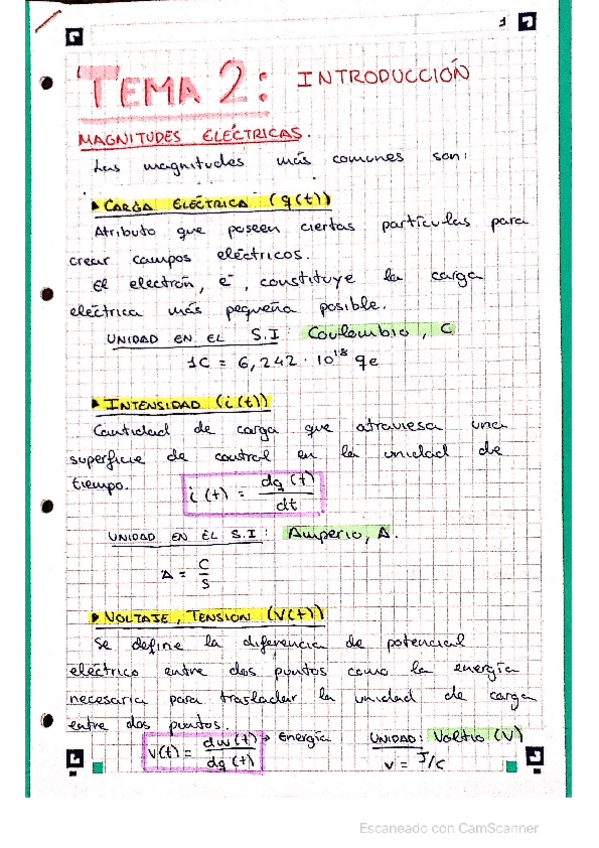 1
TEMA 2: INTRODUCCIÓN
MAGNITUDES ELÉCTRICAS.
Las magnitudes más comunes son:
▶ CARGA ELÉCTRICA: (q(t))
Atributo que poseen ciertas partículas para
crear campos eléctricos.
El electrón, e⁻, constituye la carga
eléctrica más pequeña posible.
UNIDAD EN EL S.I: Coulombio, C
1C = 6,242 · 10¹⁸ qe
▶ INTENSIDAD (i(t))
Cantidad de carga que atraviesa una
superficie de control en la unidad de
tiempo. i(t) = dq(t)/dt
UNIDAD EN EL S.I: Amperio, A.
A = C/S
▶ VOLTAJE, TENSION (V(t))
Se define la diferencia de potencial
eléctrico entre dos puntos como la energía
necesaria para trasladar la unidad de carga
entre dos puntos.
V(t) = dw(t)/dq(t) → Energía UNIDAD: Voltio (V)
V = J/C
Escaneado con CamScanner